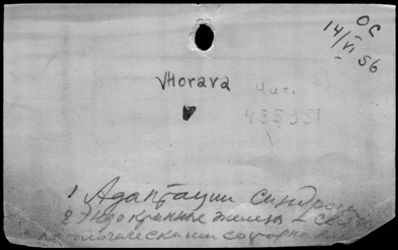 ОС
14/VI 56
VHorava
Чит.
435351
1 Адаптации синдром
2 Эндокринные железы
патологическими